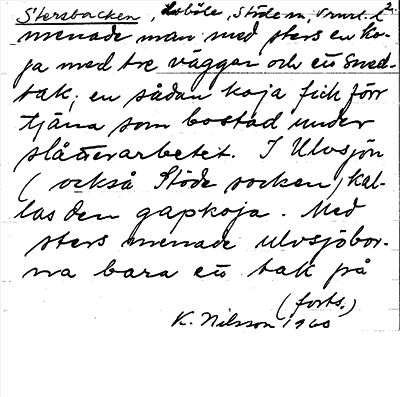 Stersbacken, Stöde sn,
menade man med sters en ko-
ja med tre väggar och ett sned-
tak; en sådan koja fick förr
tjäna som bostad under
slåtterarbetet. I Ulvsjön
(också Stöde socken) kal-
las den gapkoja. Med
sters menade ulvsjöbor-
na bara ett tak på
(forts.)
K. Nilsson 1960